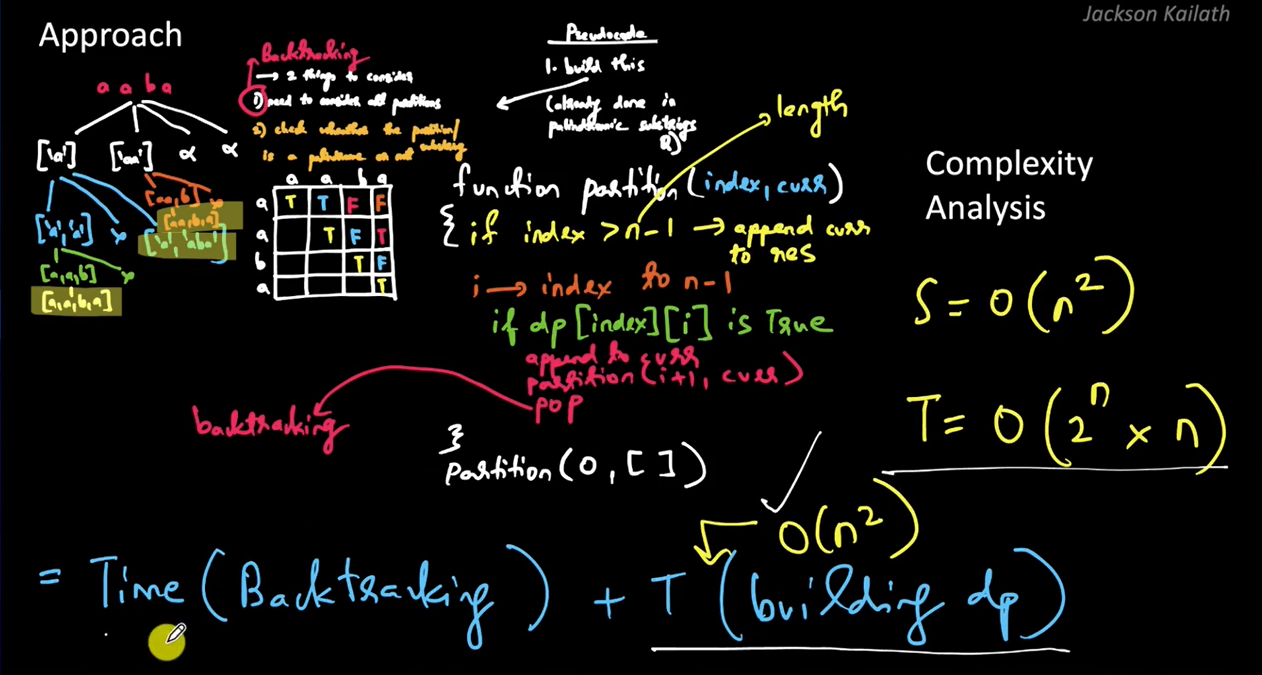 Jackson Kailath
Approach
a a b a
['a'] ['aa'] α α
[aa,b] x
[aa,b,a]
['a','a'] x ['a','aba']
[a,a,b] x
[a,a,b,a]
Backtracking
→ 2 things to consider
1) need to consider all partitions
2) check whether the partition/
substring
is a palindrome or not
a a b a
a T T F F
a T F T
b T F
a T
Pseudocode
1. build this
(already done in
palindromic substrings
Q)
length
function partition(index, curr)
{ if index > n-1 → append curr
to res
i → index to n-1
if dp[index][i] is True
append to curr
partition(i+1, curr)
pop
backtracking
}
partition(0, [])
Complexity
Analysis
S = O(n²)
T = O(2ⁿ × n)
O(n²)
= Time(Backtracking) + T(building dp)